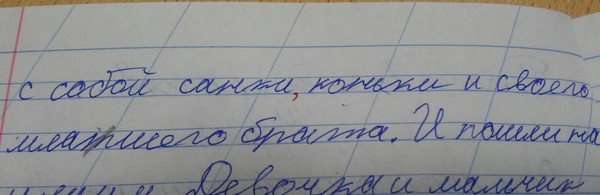 с собой санки, коньки и своего
млатшего брата. И пошли на
Девочка и мальчик